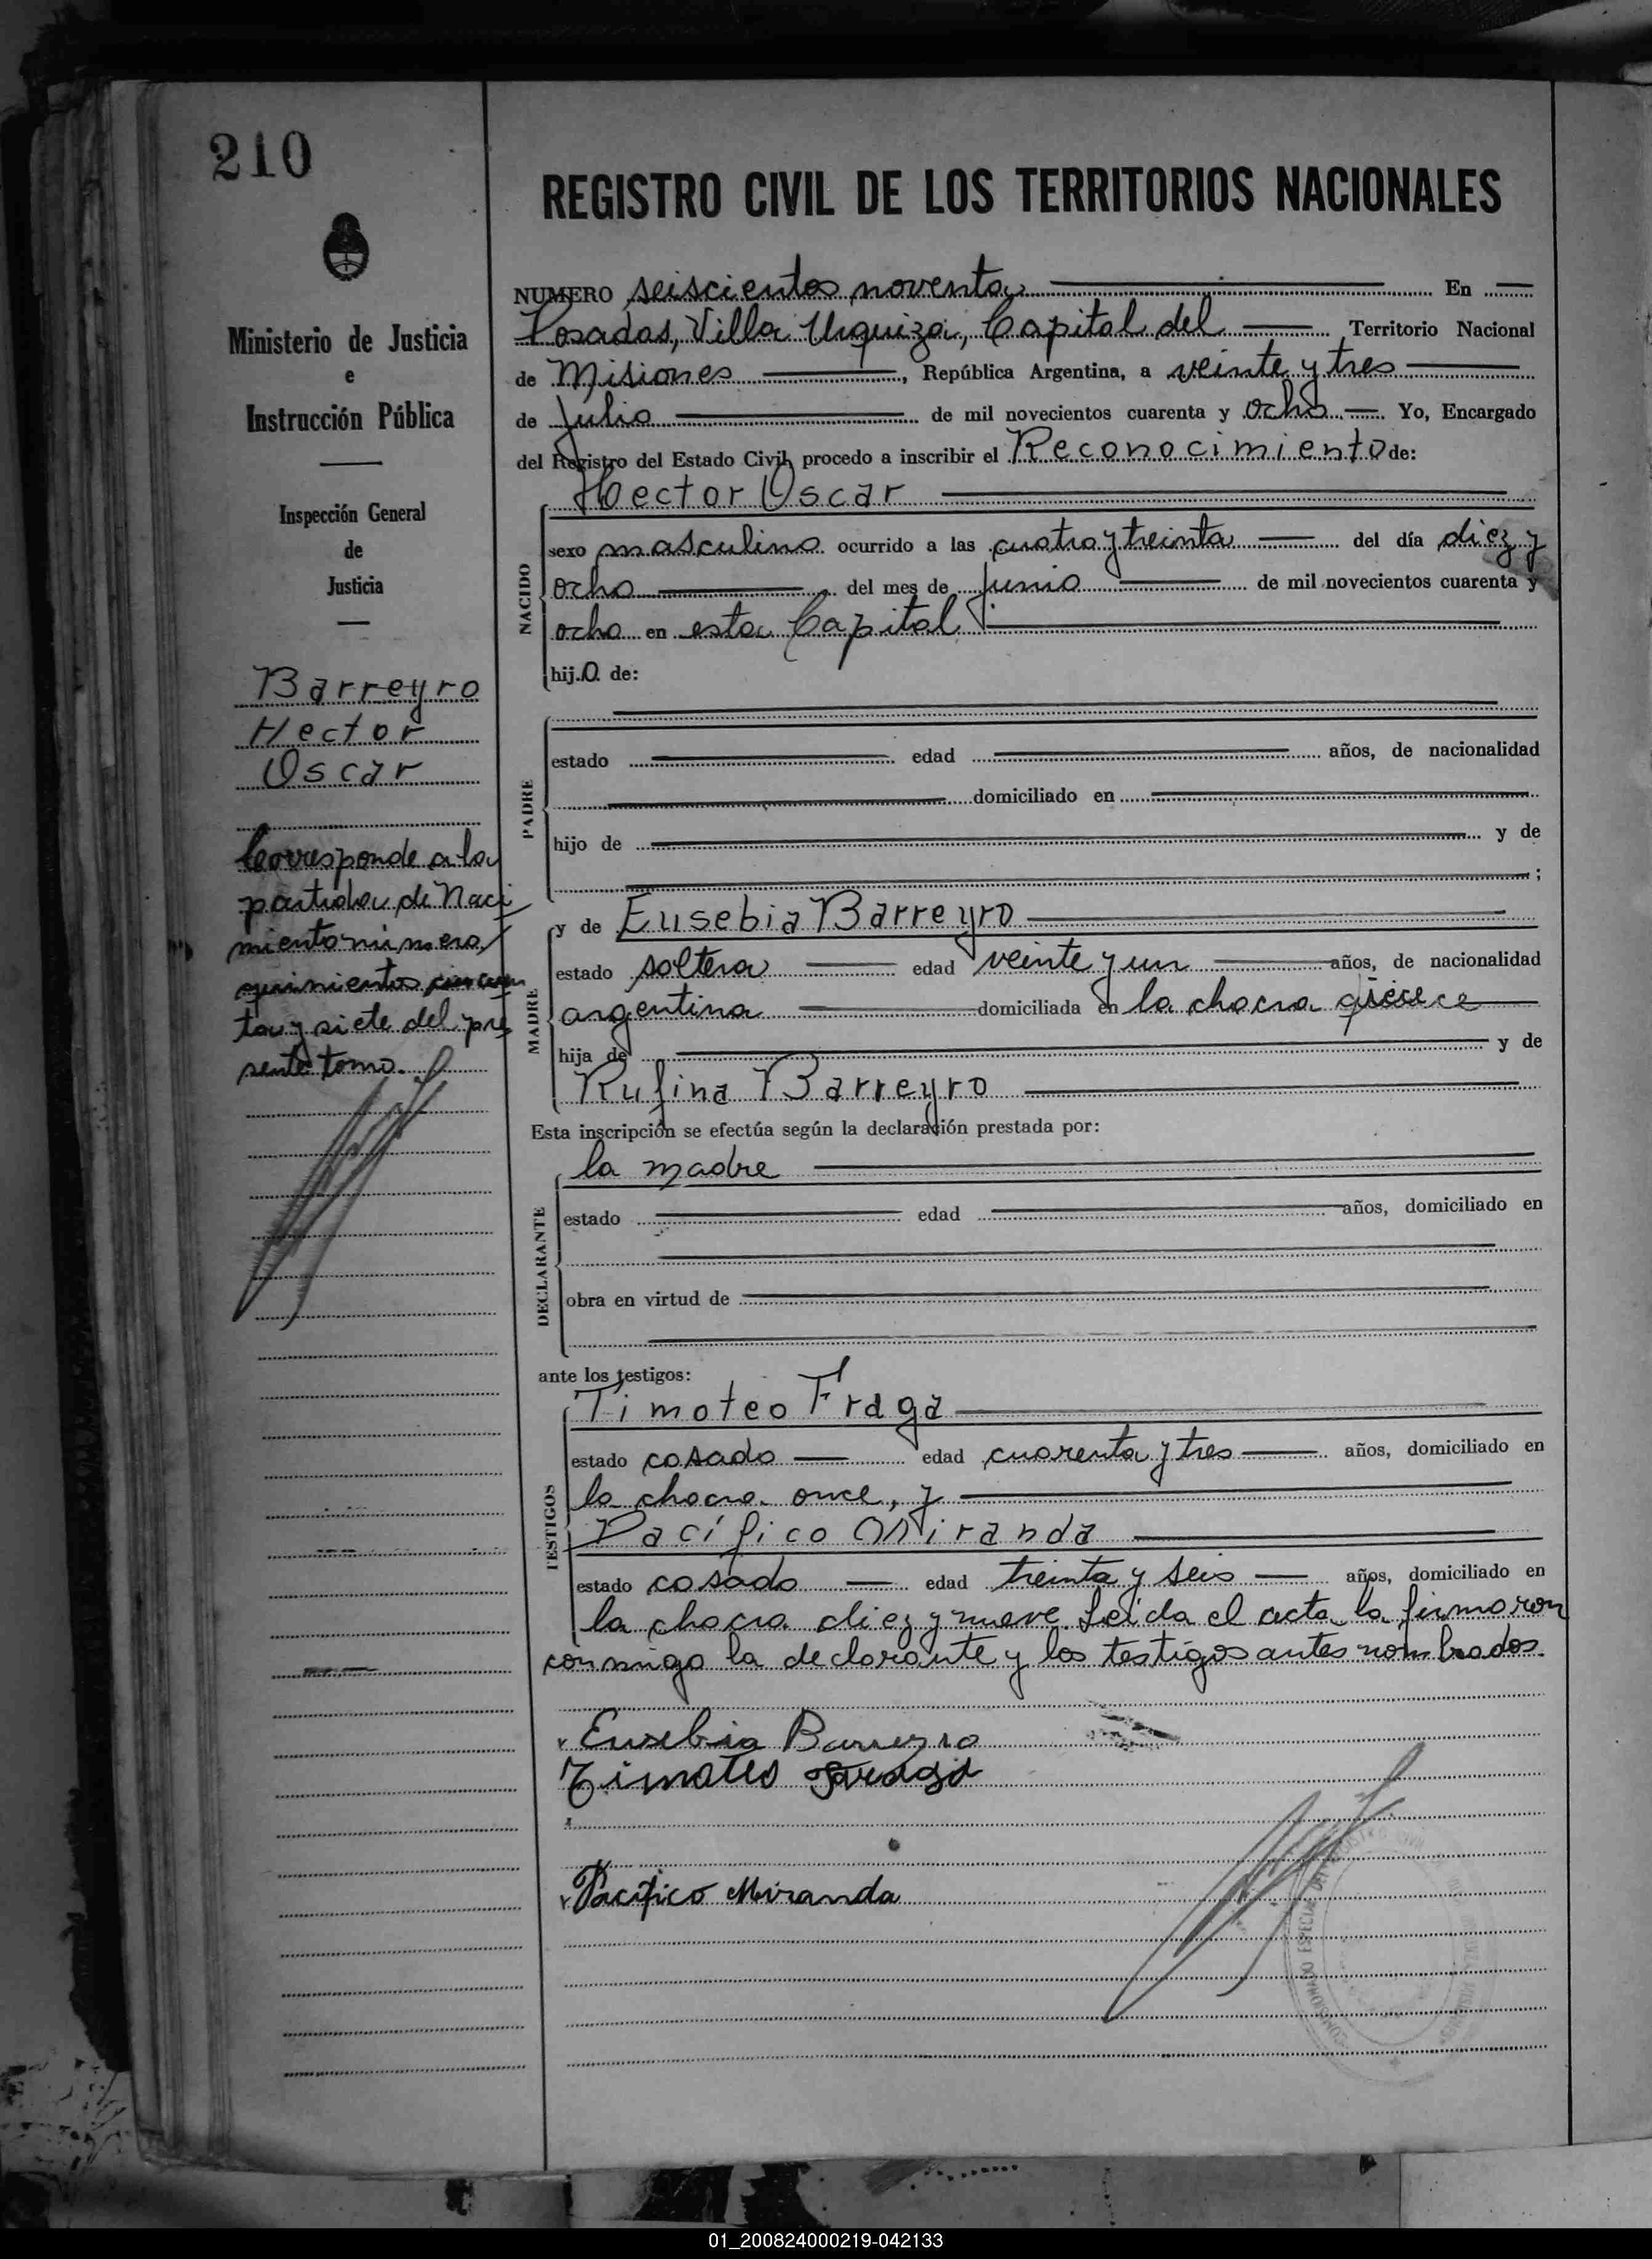 210
Ministerio de Justicia
e
Instrucción Pública
Inspección General
de
Justicia
Barreyro
Hector
Oscar
Corresponde a la
partida de Naci
miento número
quinientos cincuen
ta y siete del pre
sente tomo.
REGISTRO CIVIL DE LOS TERRITORIOS NACIONALES
NUMERO seiscientos noventa En
Posadas, Villa Urquiza, Capital del Territorio Nacional
de Misiones, República Argentina, a veinte y tres
de Julio de mil novecientos cuarenta y ocho Yo, Encargado
del Registro del Estado Civil, procedo a inscribir el Reconocimiento de:
Hector Oscar
NACIDO
sexo masculino ocurrido a las cuatro y treinta del día diez y
ocho del mes de junio de mil novecientos cuarenta y
ocho en esta Capital
hij.o de:
PADRE
estado edad años, de nacionalidad
domiciliado en
hijo de y de
;
MADRE
y de Eusebia Barreyro
estado soltera edad veinte y un años, de nacionalidad
argentina domiciliada en la chacra
hija de y de
Rufina Barreyro
Esta inscripción se efectúa según la declaración prestada por:
DECLARANTE
la madre
estado edad años, domiciliado en
obra en virtud de
ante los testigos:
TESTIGOS
Timoteo Fraga
estado casado edad cuarenta y tres años, domiciliado en
la chacra once, y
Pacífico Miranda
estado casado edad treinta y seis años, domiciliado en
la chacra diez y nueve. Leida el acta la firmaron
conmigo la declarante y los testigos antes nombrados.
Eusebia Barreyro
Timoteo Fraga
Pacifico Miranda
COMISIONADO ESPECIAL DEL REGISTRO CIVIL
01_200824000219-042133